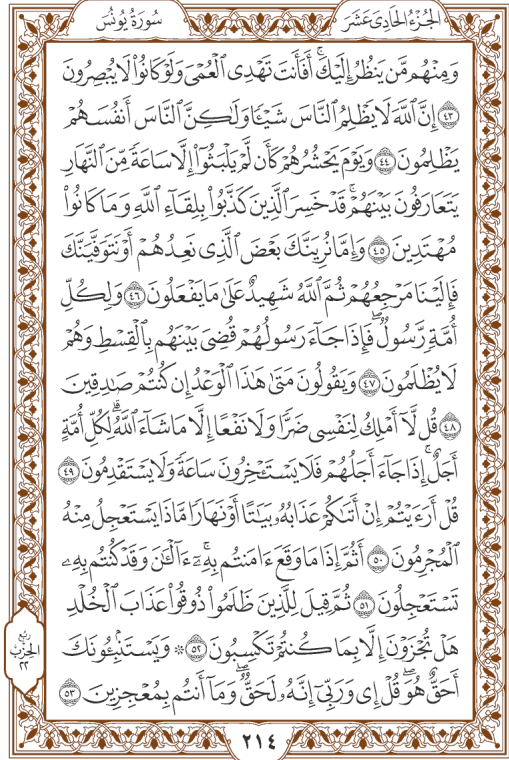 الجُزْءُ الحَادِي عَشَرَ
سُورَةُ يُونُسَ
وَمِنْهُم مَّن يَنظُرُ إِلَيْكَ ۚ أَفَأَنتَ تَهْدِى ٱلْعُمْىَ وَلَوْ كَانُوا۟ لَا يُبْصِرُونَ
٤٣ إِنَّ ٱللَّهَ لَا يَظْلِمُ ٱلنَّاسَ شَيْـًٔا وَلَـٰكِنَّ ٱلنَّاسَ أَنفُسَهُمْ
يَظْلِمُونَ ٤٤ وَيَوْمَ يَحْشُرُهُمْ كَأَن لَّمْ يَلْبَثُوٓا۟ إِلَّا سَاعَةً مِّنَ ٱلنَّهَارِ
يَتَعَارَفُونَ بَيْنَهُمْ ۚ قَدْ خَسِرَ ٱلَّذِينَ كَذَّبُوا۟ بِلِقَآءِ ٱللَّهِ وَمَا كَانُوا۟
مُهْتَدِينَ ٤٥ وَإِمَّا نُرِيَنَّكَ بَعْضَ ٱلَّذِى نَعِدُهُمْ أَوْ نَتَوَفَّيَنَّكَ
فَإِلَيْنَا مَرْجِعُهُمْ ثُمَّ ٱللَّهُ شَهِيدٌ عَلَىٰ مَا يَفْعَلُونَ ٤٦ وَلِكُلِّ
أُمَّةٍ رَّسُولٌ ۖ فَإِذَا جَآءَ رَسُولُهُمْ قُضِىَ بَيْنَهُم بِٱلْقِسْطِ وَهُمْ
لَا يُظْلَمُونَ ٤٧ وَيَقُولُونَ مَتَىٰ هَـٰذَا ٱلْوَعْدُ إِن كُنتُمْ صَـٰدِقِينَ
٤٨ قُل لَّآ أَمْلِكُ لِنَفْسِى ضَرًّا وَلَا نَفْعًا إِلَّا مَا شَآءَ ٱللَّهُ ۗ لِكُلِّ أُمَّةٍ
أَجَلٌ ۚ إِذَا جَآءَ أَجَلُهُمْ فَلَا يَسْتَـْٔخِرُونَ سَاعَةً وَلَا يَسْتَقْدِمُونَ ٤٩
قُلْ أَرَءَيْتُمْ إِنْ أَتَىٰكُمْ عَذَابُهُۥ بَيَـٰتًا أَوْ نَهَارًا مَّاذَا يَسْتَعْجِلُ مِنْهُ
ٱلْمُجْرِمُونَ ٥٠ أَثُمَّ إِذَا مَا وَقَعَ ءَامَنتُم بِهِۦٓ ۚ ءَآلْـَٔـٰنَ وَقَدْ كُنتُم بِهِۦ
تَسْتَعْجِلُونَ ٥١ ثُمَّ قِيلَ لِلَّذِينَ ظَلَمُوا۟ ذُوقُوا۟ عَذَابَ ٱلْخُلْدِ
هَلْ تُجْزَوْنَ إِلَّا بِمَا كُنتُمْ تَكْسِبُونَ ٥٢ ۞ وَيَسْتَنۢبِـُٔونَكَ
أَحَقٌّ هُوَ ۖ قُلْ إِى وَرَبِّىٓ إِنَّهُۥ لَحَقٌّ ۖ وَمَآ أَنتُم بِمُعْجِزِينَ ٥٣
ربع
الحزب
٢٢
٢١٤